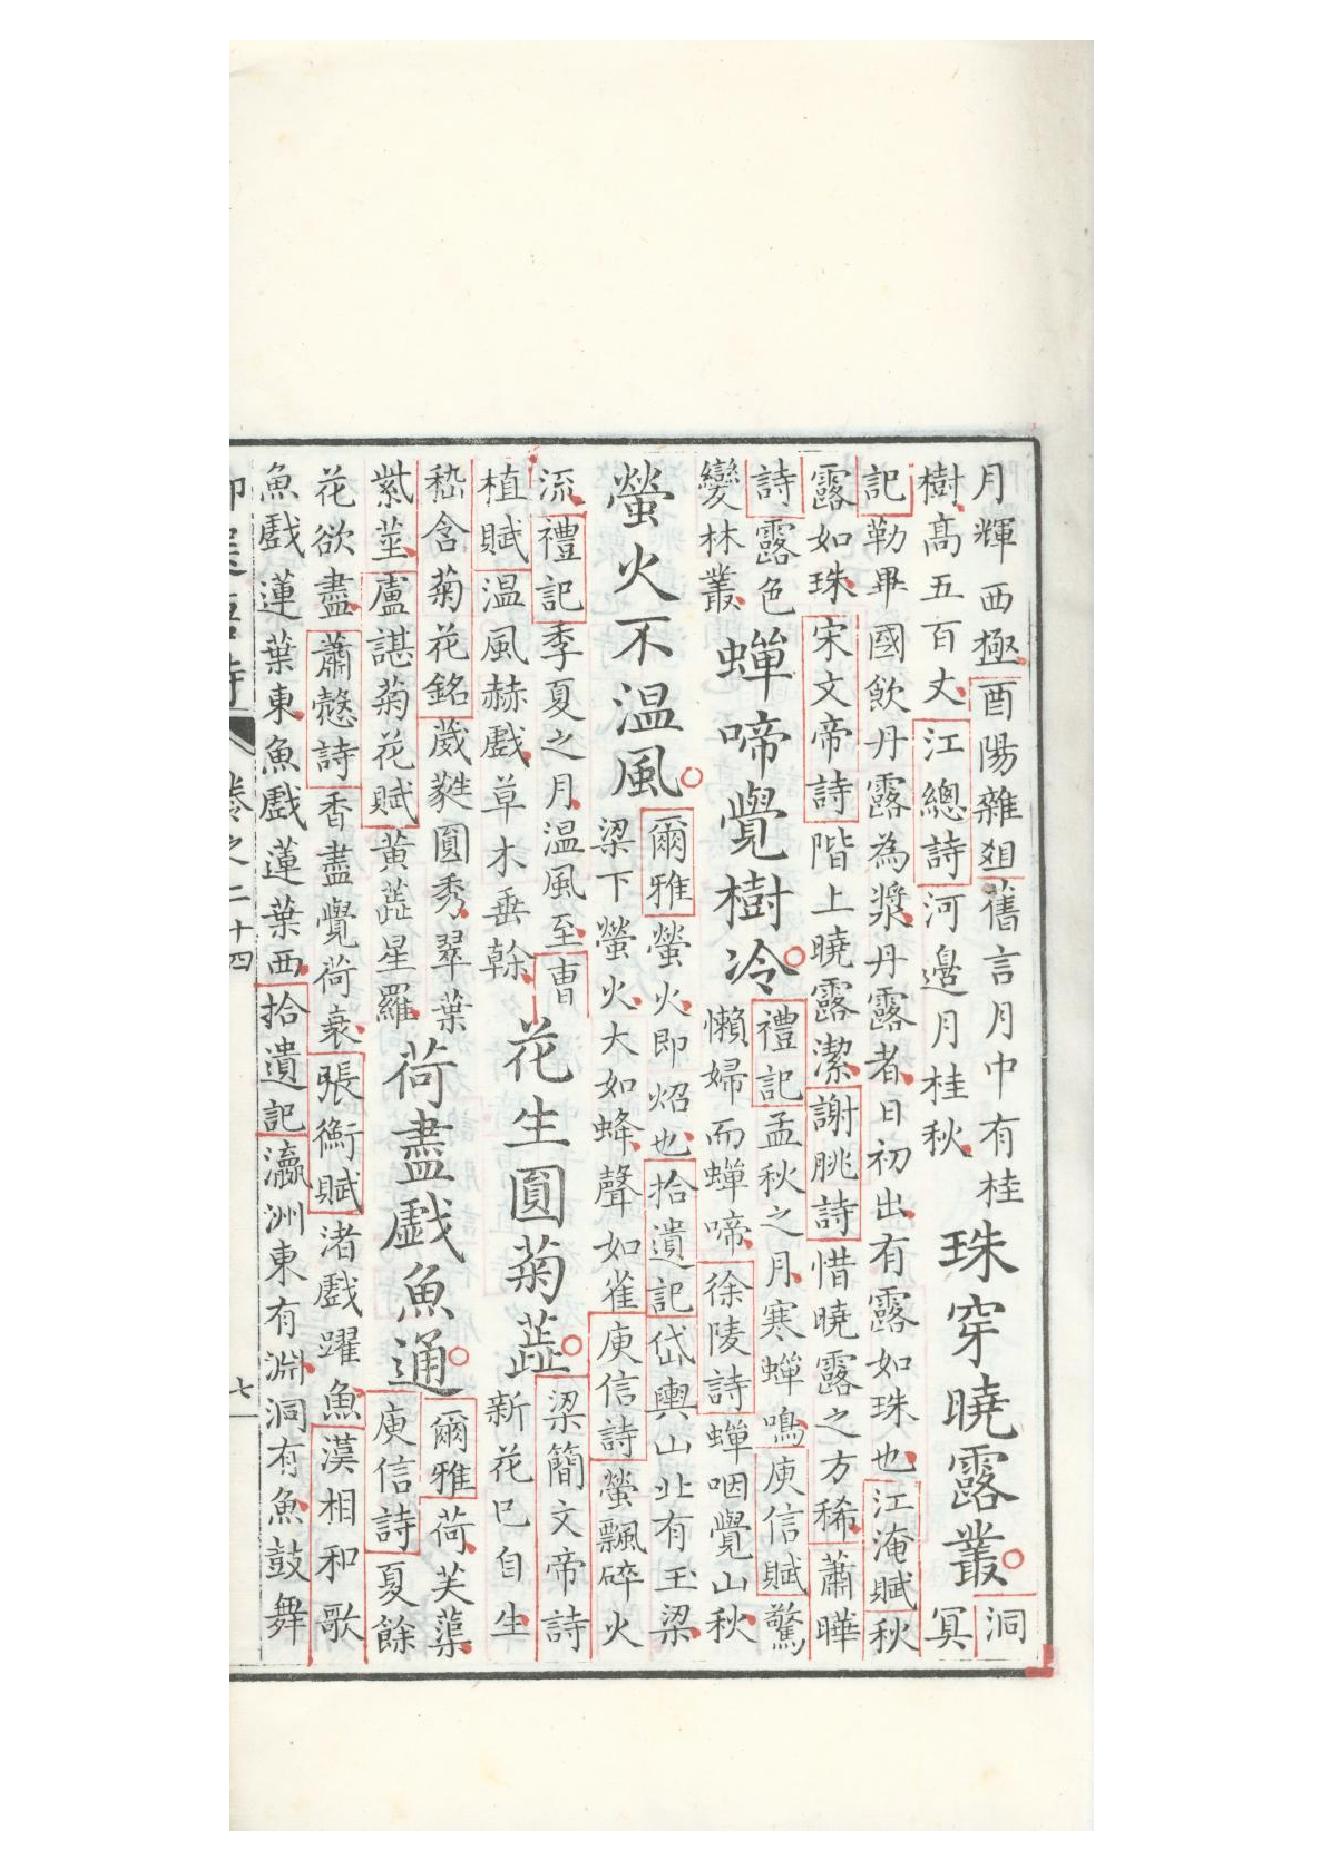 月輝西極酉陽雜俎舊言月中有桂
樹高五百丈江總詩河邊月桂秋
珠穿曉露叢
洞
冥
記勒畢國飲丹露為漿丹露者日初出有露如珠也江淹賦秋
露如珠宋文帝詩階上曉露潔謝朓詩惜曉露之方稀蕭曄
詩露色
變林叢
蟬啼覺樹冷
禮記孟秋之月寒蟬鳴庾信賦驚
懶婦而蟬啼徐陵詩蟬咽覺山秋
螢火不温風
爾雅螢火即炤也拾遺記岱輿山北有玉梁
梁下螢火大如蜂聲如雀庾信詩螢飄碎火
流禮記季夏之月温風至曹
植賦温風赫戲草木垂榦
花生圓菊蕋
梁簡文帝詩
新花巳自生
嵇含菊花銘葳蕤圓秀翠葉
紫莖盧諶菊花賦黃蕋星羅
荷盡戲魚通
爾雅荷芙蕖
庾信詩夏餘
花欲盡蕭慤詩香盡覺荷衰張衡賦渚戲躍魚漢相和歌
魚戲蓮葉東魚戲蓮葉西拾遺記瀛洲東有淵洞有魚鼓舞
卷之二十四
七